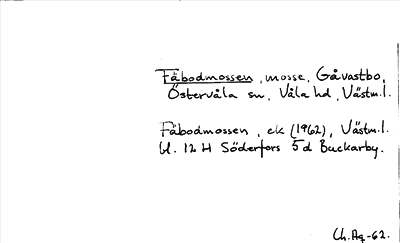 Fäbodmossen, mosse, Gåvastbo,
Östervåla sn, Våla hd, Västm.l.
Fäbodmossen, ek (1962), Västm.l.
bl. 12 H Söderfors 5 d Buckarby.
Ch.Ag-62.